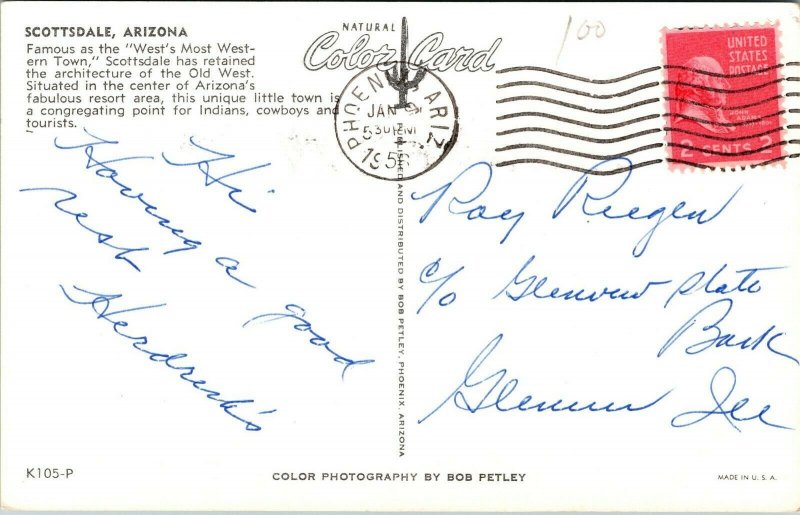 SCOTTSDALE, ARIZONA
Famous as the "West's Most West-
ern Town," Scottsdale has retained
the architecture of the Old West.
Situated in the center of Arizona's
fabulous resort area, this unique little town is
a congregating point for Indians, cowboys and
tourists.
NATURAL
Color Card
100
PHOENIX ARIZ
JAN
5 30 PM
195
UNITED
STATES
POSTAGE
JOHN
ADAMS
2 CENTS 2
Hi
Having a good
rest
Hendrick's
PUBLISHED AND DISTRIBUTED BY BOB PETLEY, PHOENIX, ARIZONA
Roy
c/o Glenview State
Bank
Glenview Ill
K105-P
COLOR PHOTOGRAPHY BY BOB PETLEY
MADE IN U. S. A.